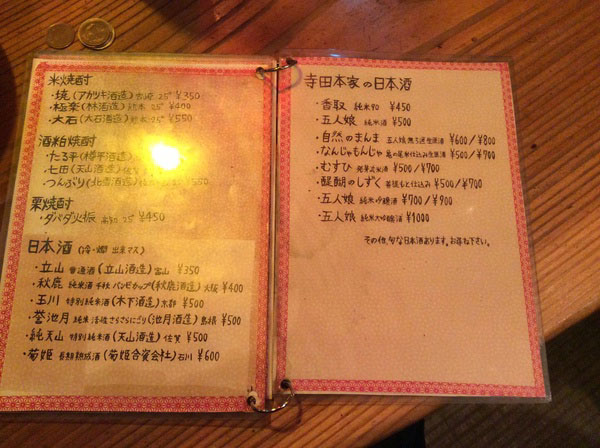 米焼酎
・焼(アカツキ酒造) 宮崎 25° ¥350
・極楽(林酒造) 熊本 25° ¥400
・大石(大石酒造) 熊本 25° ¥550
酒粕焼酎
・たる平(樽平酒造)
・七田(天山酒造)
・つんぶり(北雪酒造) ¥550
栗焼酎
・ダバダ火振 高知 25° ¥450
日本酒 (冷・燗 出来マス)
・立山 普通酒(立山酒造) 富山 ¥350
・秋鹿 純米酒 千秋 バンビカップ(秋鹿酒造) 大阪 ¥400
・玉川 特別純米酒(木下酒造) 京都 ¥500
・誉池月 純米 活性さらさらにごり(池月酒造) 島根 ¥500
・純天山 特別純米酒(天山酒造) 佐賀 ¥500
・菊姫 長期熟成酒(菊姫合資会社) 石川 ¥600
寺田本家の日本酒
・香取 純米90 ¥450
・五人娘 純米酒 ¥500
・自然のまんま 五人娘無ろ過生原酒 ¥600/¥800
・なんじゃもんじゃ 亀の尾米仕込み生原酒 ¥500/¥700
・むすひ 発芽玄米酒 ¥500/¥700
・醍醐のしずく 菩提もと仕込み ¥500/¥700
・五人娘 純米吟醸酒 ¥700/¥900
・五人娘 純米大吟醸酒 ¥1000
その他、旬な日本酒あります。お尋ね下さい。